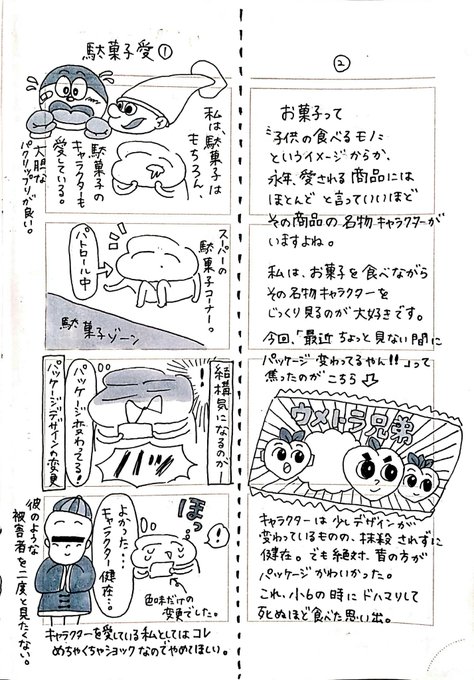 駄菓子愛①
私は、駄菓子は
もちろん、
駄菓子の
キャラクターも
愛している。
大胆な
パクリップリが良い。
スーパーの
駄菓子コーナー。
パトロール中
駄菓子ゾーン
結構気になるのが…
パッケージデザインの変更
パッケージ変わってる!
!
バババッ
ほっ
。!
よかった…
キャラクター健在…。
色味だけの
変更でした。
彼のような
被害者を二度と見たくない。
キャラクターを愛している私としてはコレ
めちゃくちゃショックなのでやめてほしい。
②
お菓子って
"子供の食べるモノ"
というイメージからか、
永年、愛される商品には
ほとんどと言っていいほど
その商品の名物キャラクターが
いますよね。
私は、お菓子を食べながら
その名物キャラクターを
じっくり見るのが大好きです。
今回、「最近ちょっと見ない間に
パッケージ変わってるやん!!」って
焦ったのがこちら↓
ウメトラ兄弟
キャラクターは少しデザインが
変わっているものの、抹殺されずに
健在。でも絶対、昔の方が
パッケージかわいかった。
これ、小6の時にドハマりして
死ぬほど食べた思い出。